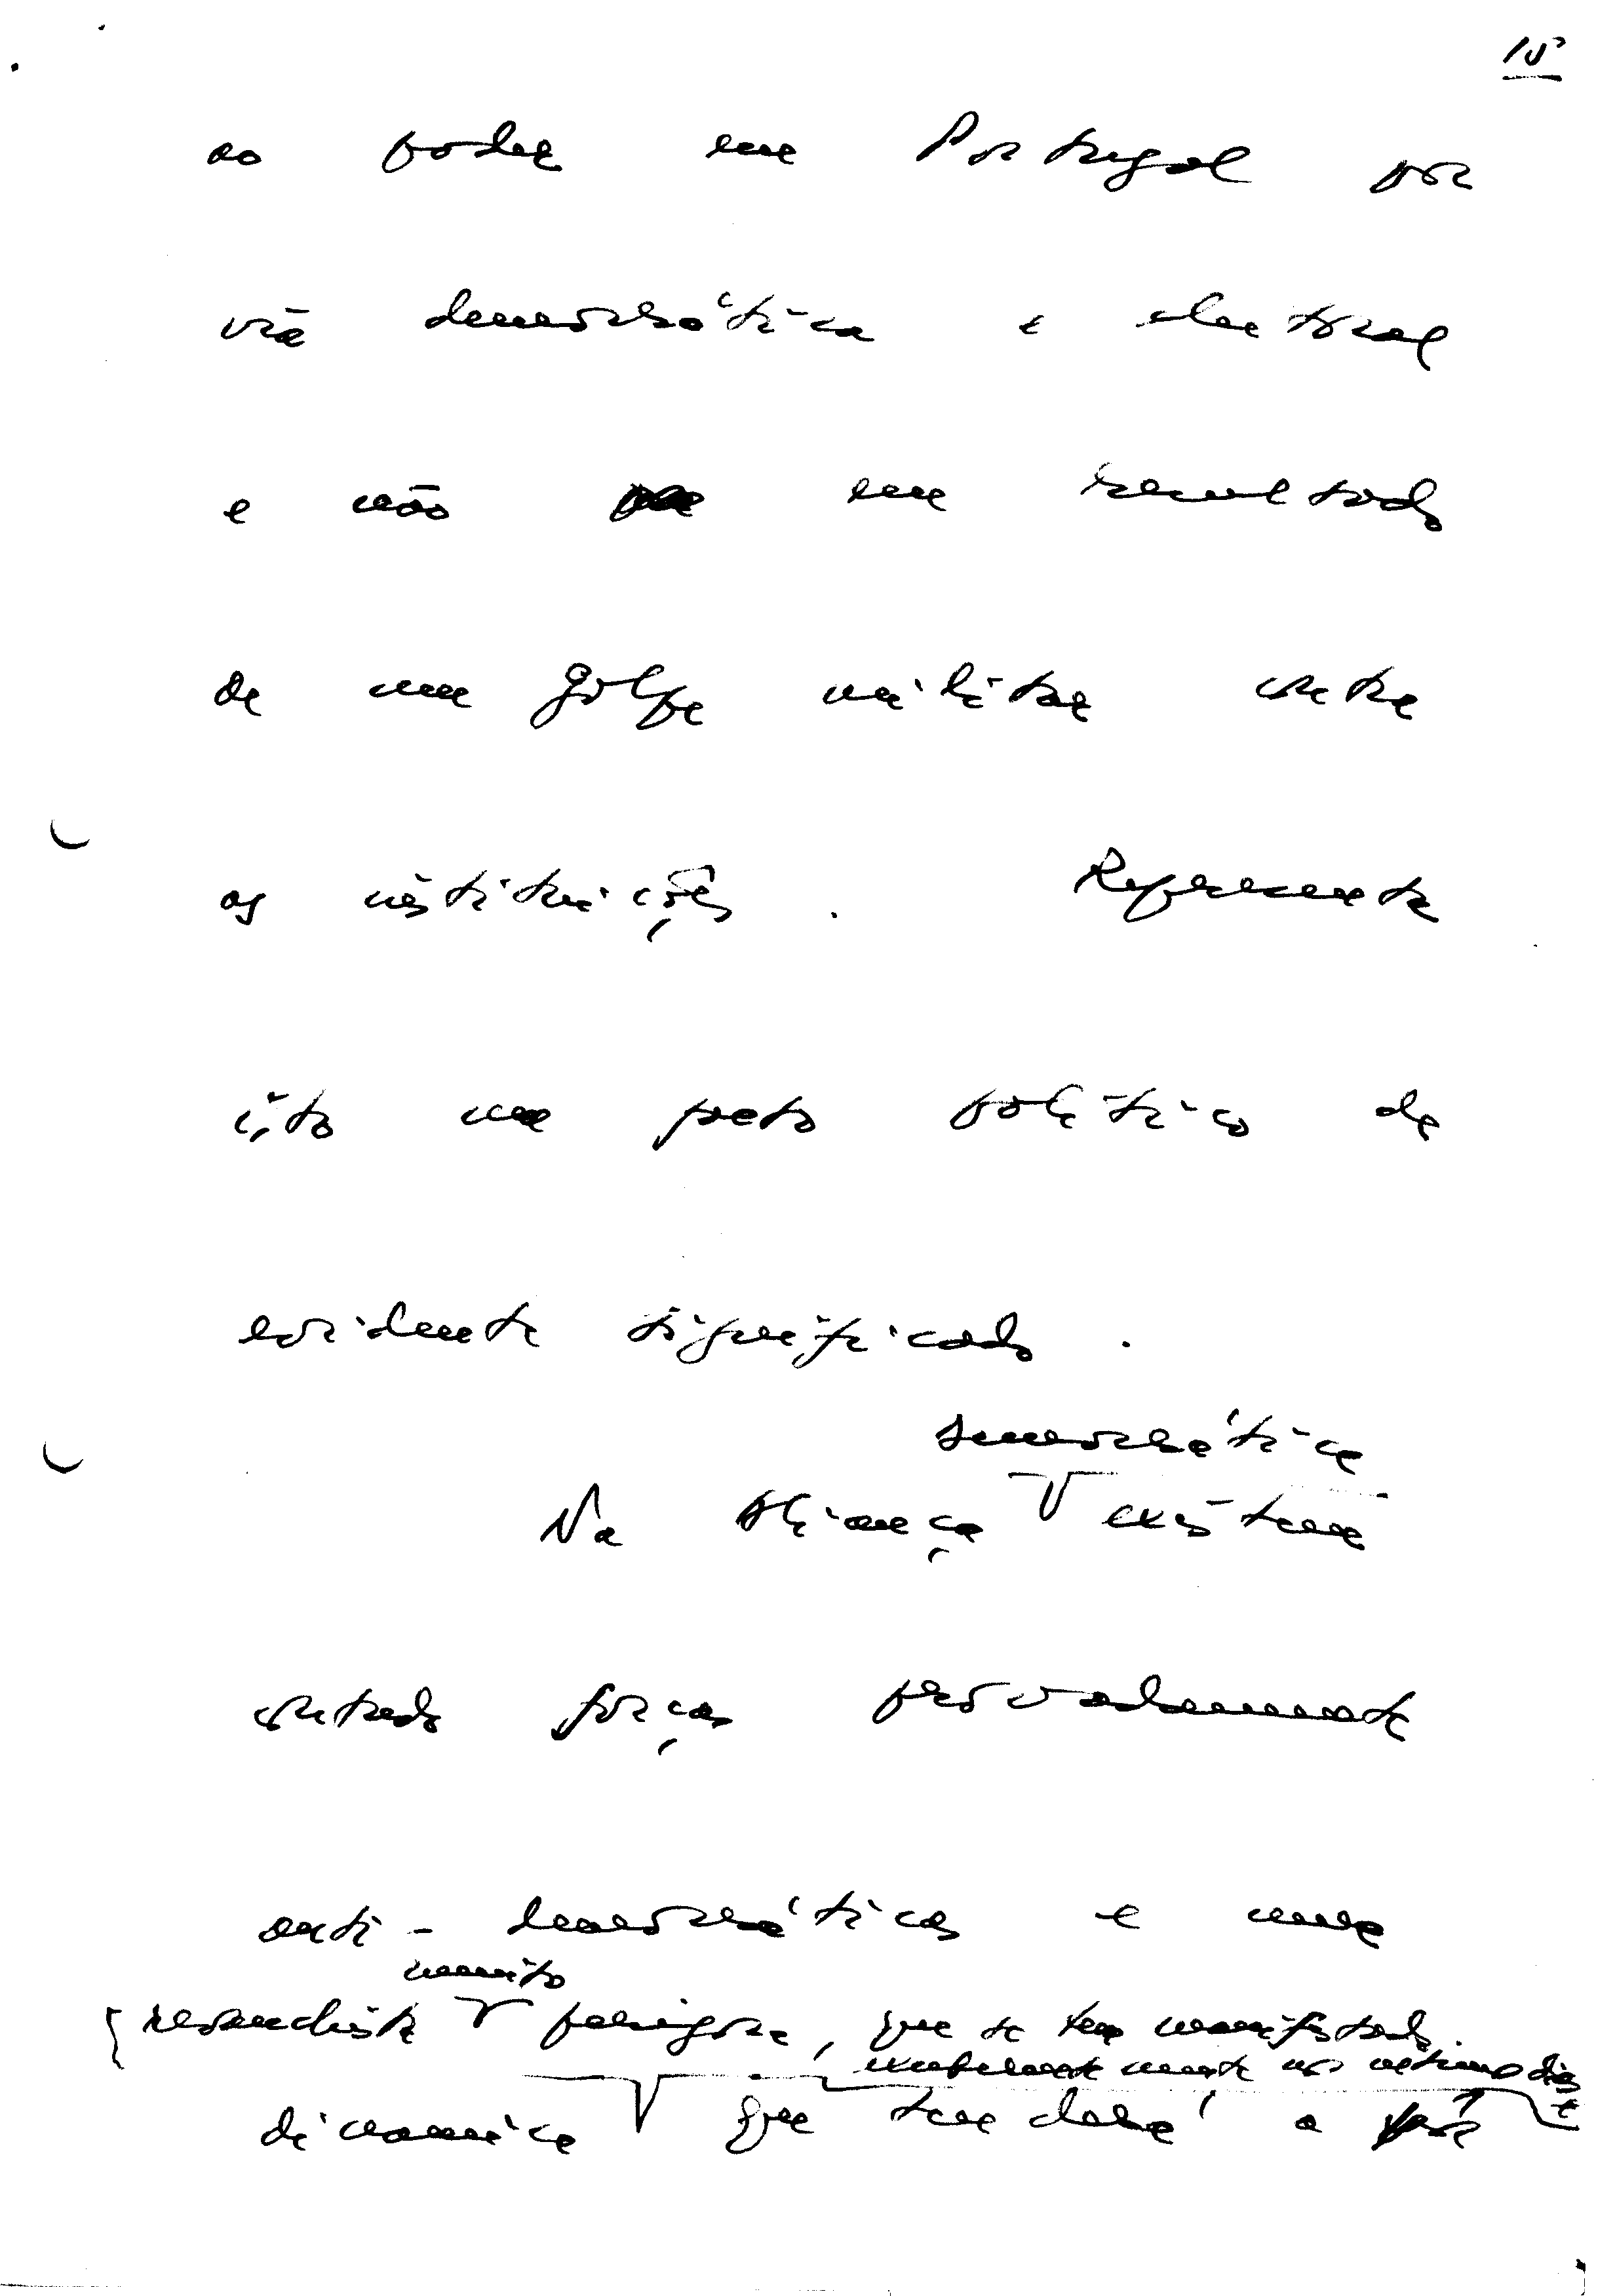 15
ao poder em Portugal por
via democrática e eleitoral
e não em resultado
de um golpe militar contra
as instituições. Representa
isto um facto político de
evidente significado.
democrática
Na Aliança existem
contudo forças provadamente
anti-democráticas e uma
muito
revanchista perigosa, que se tem manifestado
nos últimos dias
dinâmica que tenderá a pôr